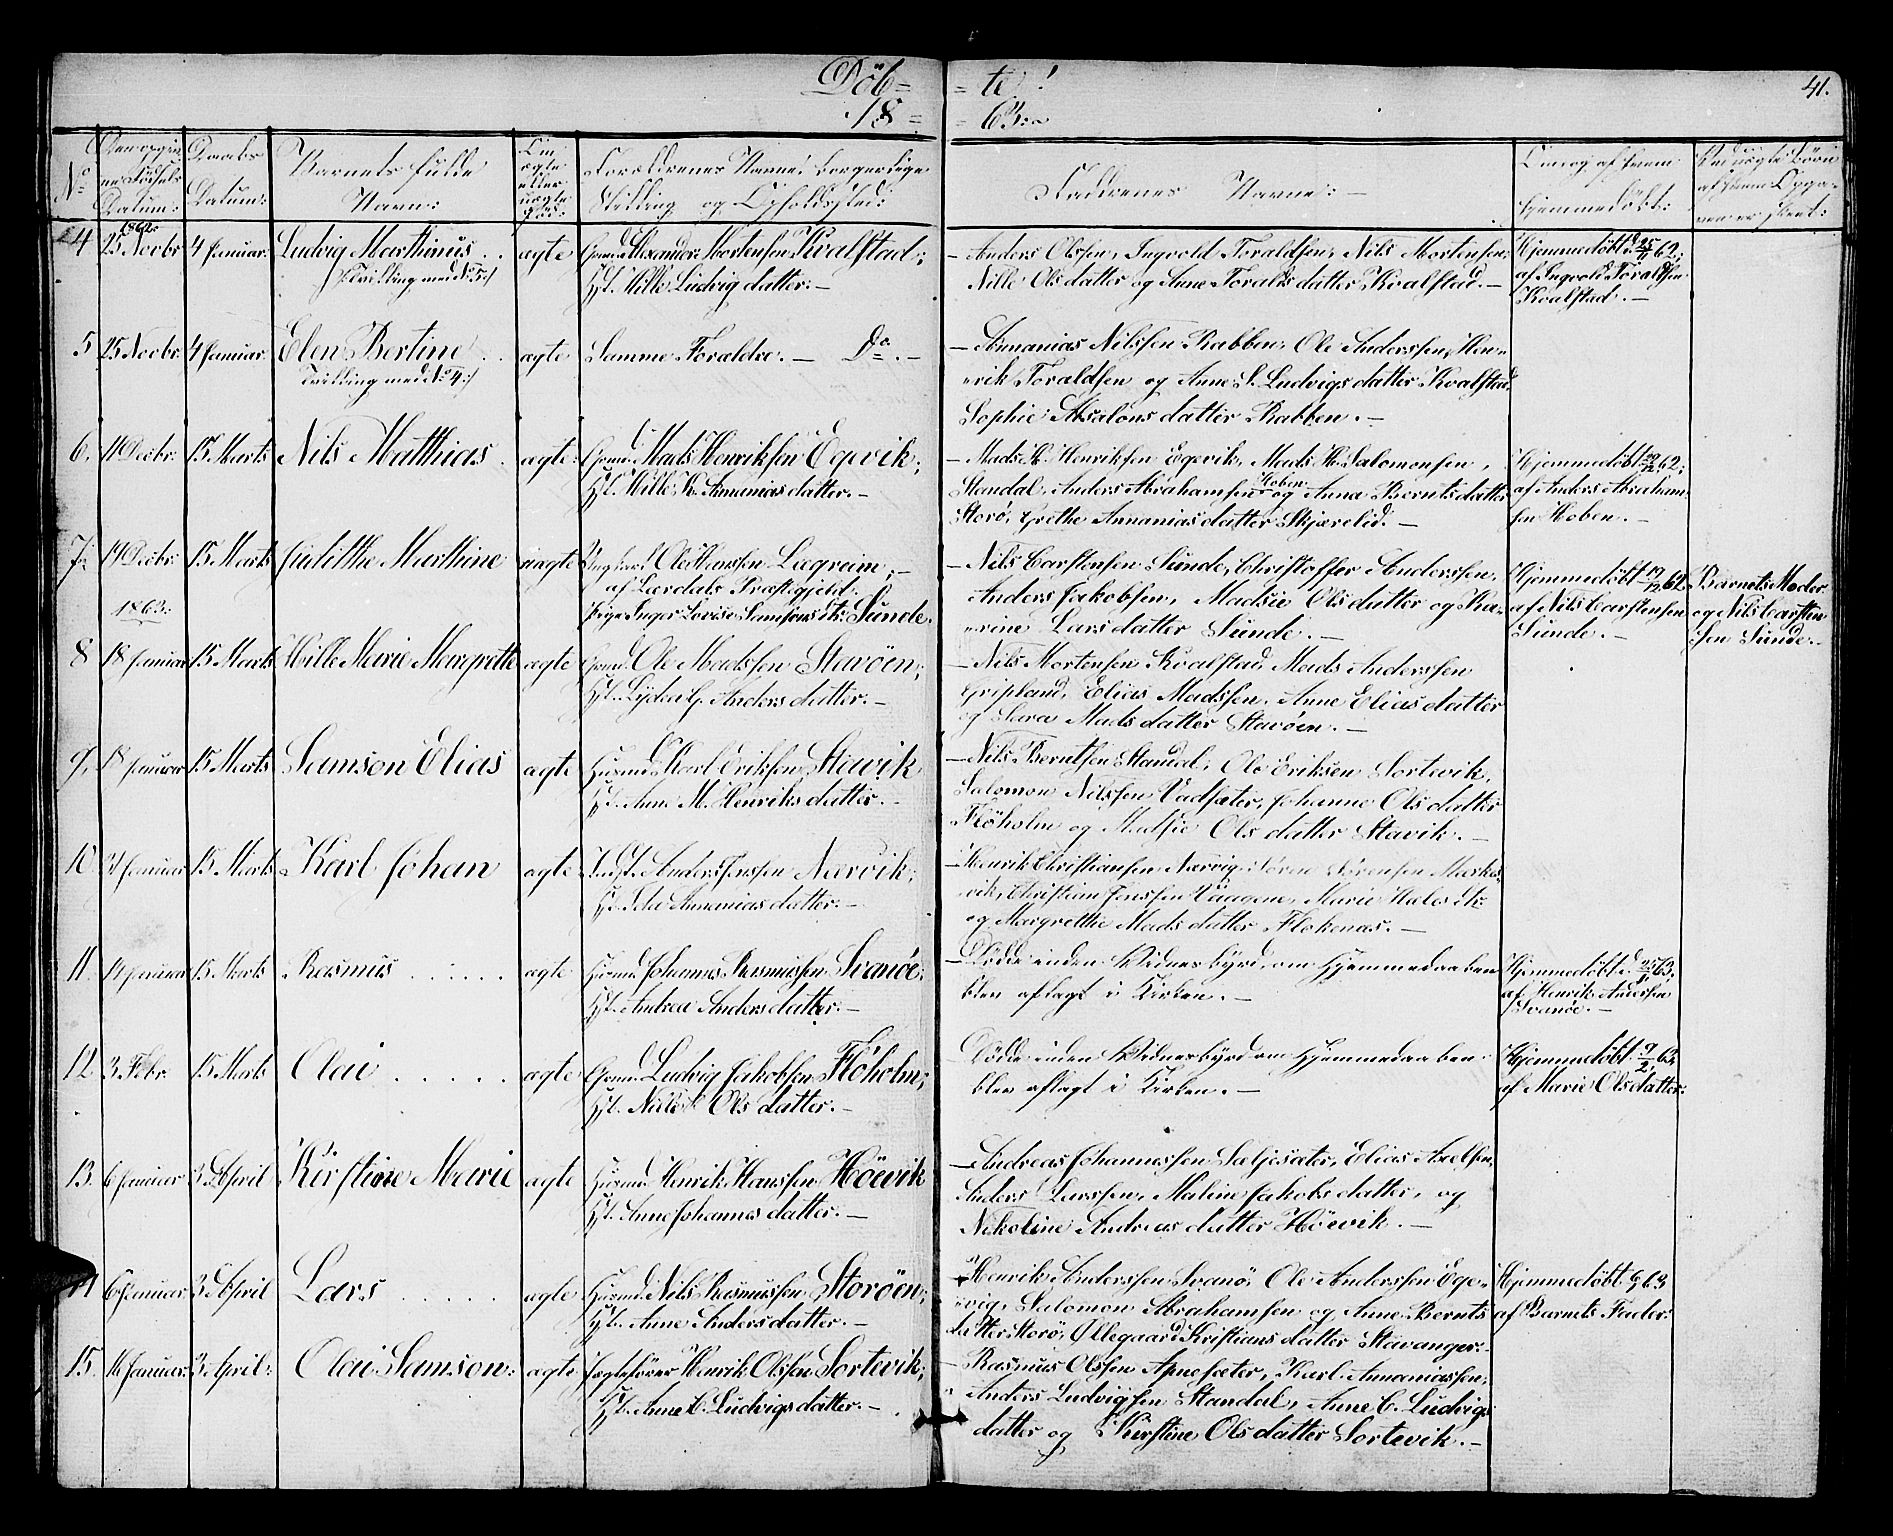 Döb=
= te!
41.
18 =
= 63:
No
Datum:
Daabs
Datum:
Barnets fulde
Navn:
ægte
eller
uægte
Forældrenes Navne, borgerlige
Stilling og Opholdssted:
Faddrenes Navne: —
Om og af hvem
hjemmedöbt:
1862.
4 25 Novbr 4 Januar. Ludvig Marthinus . . ægte Alexander Mortensen Kvalstad;
Tvilling med No 5:/
Hst. Nille Ludvigdatter: —
— Anders Olssen, Ingvold Toraldsen, Nils Mortensen,
Nille Olsdatter og Anne Toraldsdatter Kvalstad. —
Hjemmedöbt d. 25/11 62;
af Ingvold Toraldsen
Kvalstad. —
5 25 Novbr. 4 Januar. Elen Bertine . . ægte Samme Forældre. — Do. —
Tvilling med No 4:/
— Annanias Nilssen Rabben, Ole Anderssen, Hen-
rik Toraldsen og Anne S. Ludvigsdatter Kvalstad
Sophie Absalonsdatter Rabben. —
6. 11 Decbr. 15 Marts Nils Matthias . ægte: Mads Henriksen Egevik;
Hst. Nille K. Annaniasdatter. —
— Mads H. Henriksen Egevik, Mads H. Salomonsen,
Standal, Anders Abrahamsen Hoben og Anna Berntsdatter
Storö, Grethe Annaniasdatter Skjærelid. —
Hjemmedöbt 20/12 62;
af Anders Abraham-
sen Hoben. —
7 19 Decbr. 15 Marts Marthine uægte Ungkarl Ole Hanssen Lægreim, —
af Lærdals Præstegjeld.
Pige Inger Lovise Samsonsdtr. Sunde.
— Nils Carstensen Sunde, Christoffer Anderssen,
Anders Jakobsen, Madsie Olsdatter og Ka-
rine Larsdatter Sunde. —
Hjemmedöbt 19/12 62
af Nils Carstensen
Sunde. —
Barnets Moder
og Nils Carsten
sen Sunde. —
1863:
8 18 Januar 15 Marts Nille Marie Margrette ægte Ole Madssen Stavöen;
Hst. Lydia G. Andersdatter. —
— Nils Mortensen Kvalstad, Mads Anderssen
Gripland, Elias Madssen, Anne Eliasdatter
og Sara Madsdatter Stavöen. —
9, 18 Januar 15 Marts Samson Elias ægte Husmd. Karl Eriksen Stavik
Hst. Anne M. Henriksdatter. —
— Nils Berntsen Standal, Ole Eriksen Sortevik,
Salomon Nilssen Vadsæter, Johanne Olsdatter
Flöholm og Madsie Olsdatter Stavik. —
10. 31 Januar 15 Marts Karl Johan ægte Indst. Anders Jenssen Nærvik;
Annaniasdatter: —
— Henrik Christiansen Nærvig, Sören Sörensen Markes-
vik, Christian Jenssen Vaagene, Marie
og Margrethe Madsdatter Flokenæs. —
11. 14 Januar 15 Marts Rasmus . . . . . ægte Husmd. Johannes Rasmussen Svanöe;
Hst. Andrea Andersdatter. —
— Dödde inden Vidnesbyrd om Hjemmedaaben
blev aflagt i Kirken. —
Hjemmedöbt d. 25/1 63.
af Henrik Anderssen
Svanöe. —
12. 3 Febr. 15 Marts Olai . . . . . ægte Ludvig Jakobsen Flöholm;
Hst. Nille Olsdatter. —
— Dödde inden Vidnesbyrd om Hjemmedaaben
blev aflagt i Kirken. —
Hjemmedöbt 9/2 63
af Marie Olsdatter:
13. 6 Januar 3 April Kirstine Marie ægte Husmd. Henrik Hanssen Höevik
Hst. Anne Johannesdatter. —
— Andreas Johannessen Sæljesæter, Elias Axelsen,
Anders Larssen, Maline Jakobsdatter, og
Nikoline Andreasdatter Höevik. —
6 Januar 3 April Lars . . . . . ægte Husmd. Nils Rasmussen Storöen;
Hst. Anne Andersdatter. —
Henrik Anderssen Svanö, Ole Anderssen Ege-
vig, Salomon Abrahamsen og Anne Bernts
datter Storö, Ollegaard Kristiansdatter Stavanger. —
Hjemmedöbt 63
af Barnets Fader:
15. 16 Januar 3 April: Olai Samson: ægte Henrik Olssen Sortevik;
Hst. Anne C. Ludvigsdatter. —
— Rasmus Olssen Apnesæter, Karl Annaniassen,
Anders Ludvigsen Standal, Anne C. Ludvigs
datter og Kirstine Olsdatter Sortevik. —